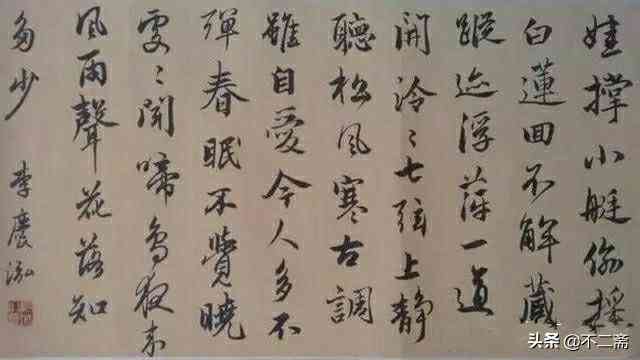 娃撑小艇偷採
白蓮回不解藏
蹤迹浮萍一道
開泠々七弦上静
聽松風寒古調
雖自愛今人多不
彈春眠不覺曉
處々聞啼鳥夜来
風雨聲花落知
多少
李慶泓
头条 @不二斋